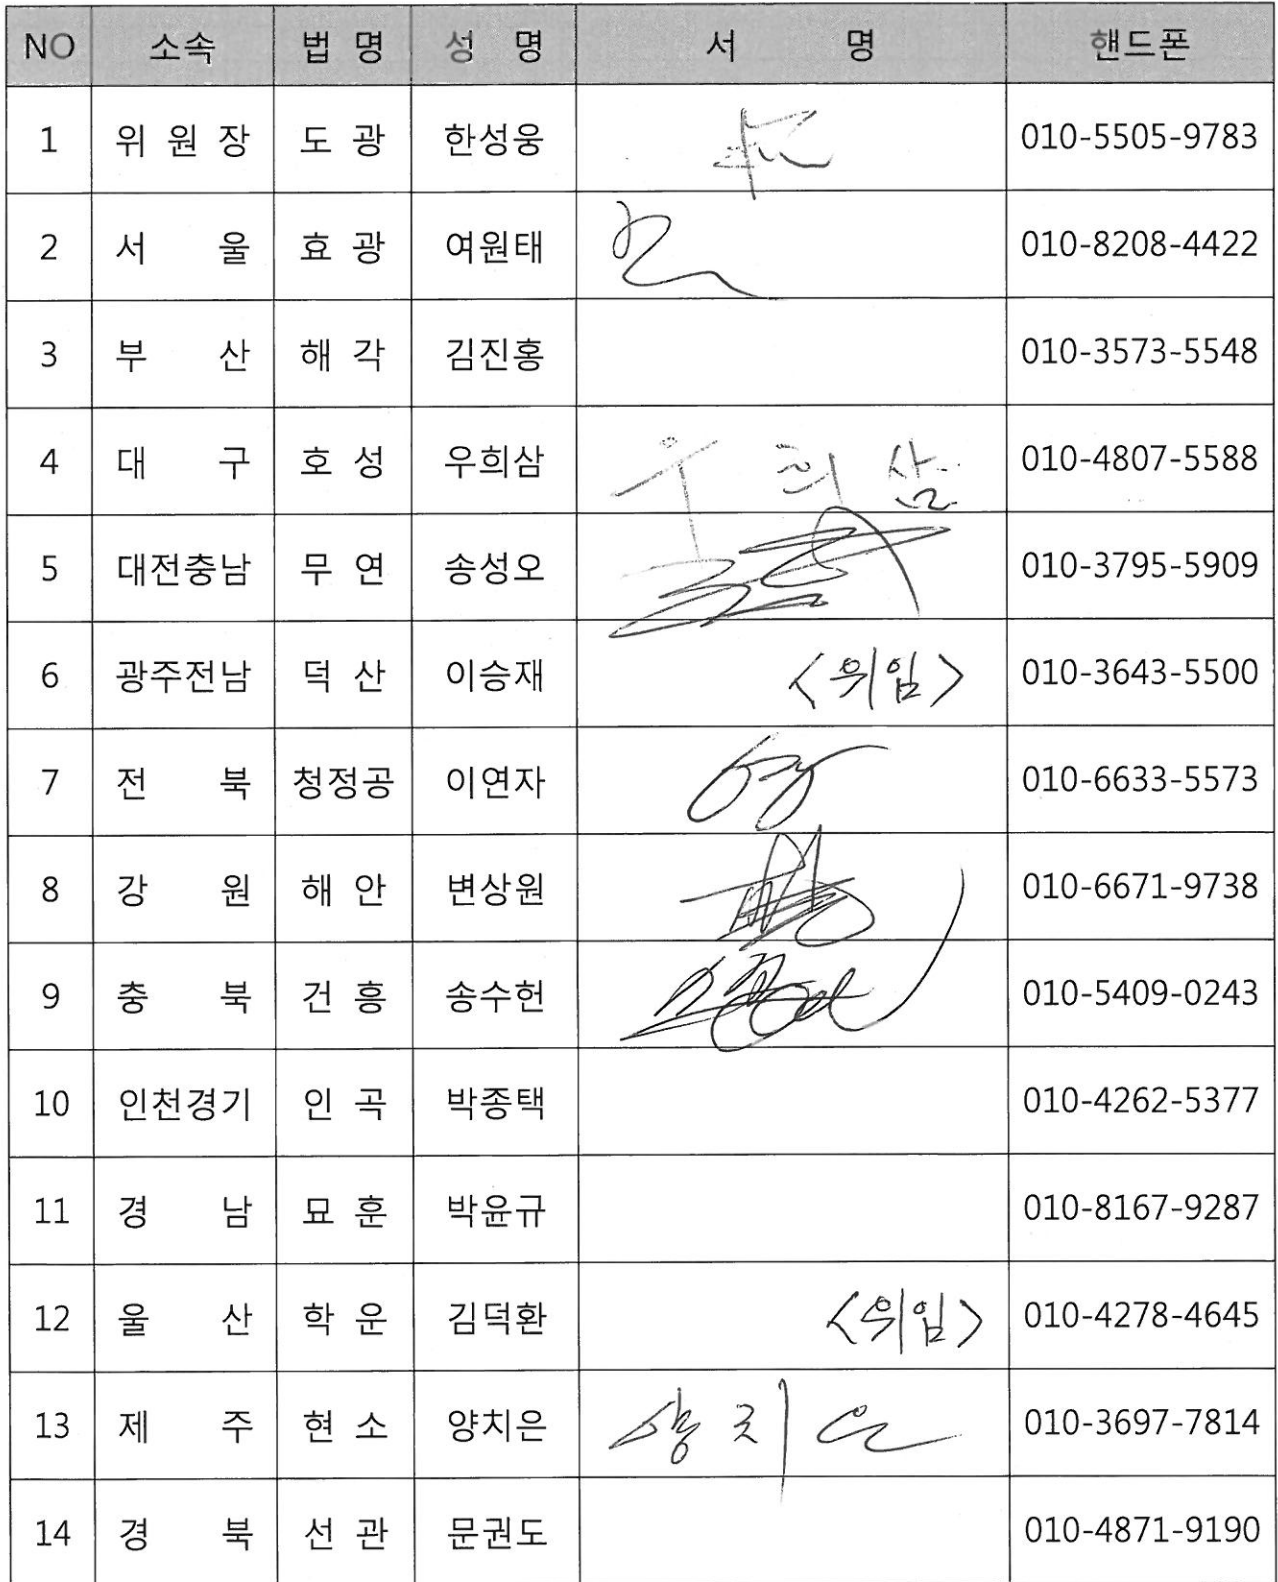 NO 소속 법 명 성 명 서 명 핸드폰
1 위 원 장 도 광 한성웅 010-5505-9783
2 서 울 효 광 여원태 010-8208-4422
3 부 산 해 각 김진홍 010-3573-5548
4 대 구 호 성 우희삼 우 희 삼 010-4807-5588
5 대전충남 무 연 송성오 010-3795-5909
6 광주전남 덕 산 이승재 <위임> 010-3643-5500
7 전 북 청정공 이연자 010-6633-5573
8 강 원 해 안 변상원 010-6671-9738
9 충 북 건 흥 송수헌 010-5409-0243
10 인천경기 인 곡 박종택 010-4262-5377
11 경 남 묘 훈 박윤규 010-8167-9287
12 울 산 학 운 김덕환 <위임> 010-4278-4645
13 제 주 현 소 양치은 양 치 은 010-3697-7814
14 경 북 선 관 문권도 010-4871-9190